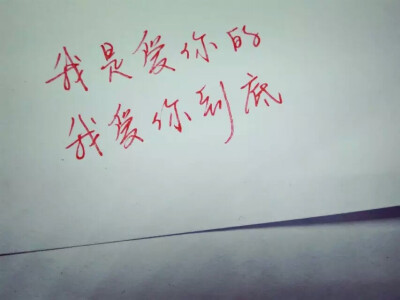 我是爱你的
我爱你到底